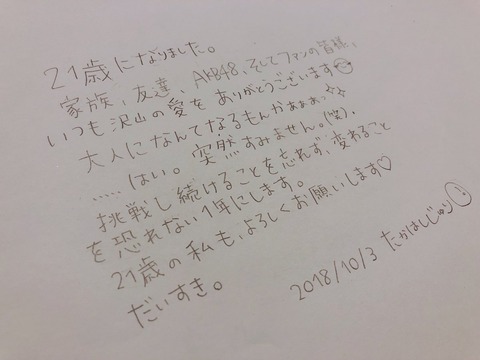 21歳になりました。
家族、友達、AKB48、そしてファンの皆様、
いつも沢山の愛をありがとうございます
大人になんてなるもんかぁぁぁっ☆☆
‥‥‥はい。突然すみません。(笑)。
挑戦し続けることを忘れず、変わること
を恐れない1年にします。
21歳の私も、よろしくお願いします♡
だいすき。
2018/10/3 たかはしじゅり